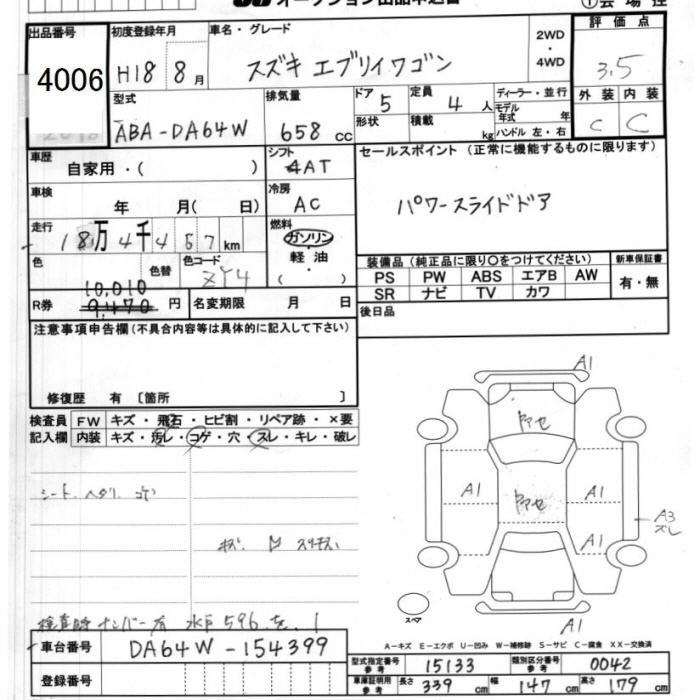 オークション出品申込書
出品番号
4006
初度登録年月
H18 8月
車名・グレード
スズキ エブリィワゴン
2WD
・
4WD
評価点
3.5
型式
ABA-DA64W
排気量
658 cc
ドア 5
形状
定員 4 人
積載 kg
ディーラー・並行
モデル年式 年
ハンドル 左・右
外装 内装
C C
車歴
自家用・( )
シフト
4AT
セールスポイント (正常に機能するものに限ります)
パワースライドドア
車検
年 月( 日)
冷房
AC
走行
18万4千467km
燃料
ガソリン
軽油
( )
色
色替
色コード
ZY4
装備品 (純正品に限り○をつけてください)
PS PW ABS エアB AW
SR ナビ TV カワ
新車保証書
有・無
10,010
R券 9,470 円
名変期限 月 日
後日品
注意事項申告欄(不具合内容等は具体的に記入して下さい)
修復歴 有 〔箇所 〕
検査員記入欄
FW キズ・飛石・ヒビ割・リペア跡・×要
内装 キズ・汚レ・コゲ・穴・スレ・キレ・破レ
シート ヘタリ コゲ
A1
A1
A1
A1
A1
A3
ズレ
スペア
A1
A-キズ E-エクボ U-凹み W-補修跡 S-サビ C-腐食 XX-交換済
車台番号 DA64W-154399
登録番号
型式指定番号 参考 15133 類別区分番号 参考 0042
車庫証明用 参考 長さ 339 cm 幅 147 cm 高さ 179 cm